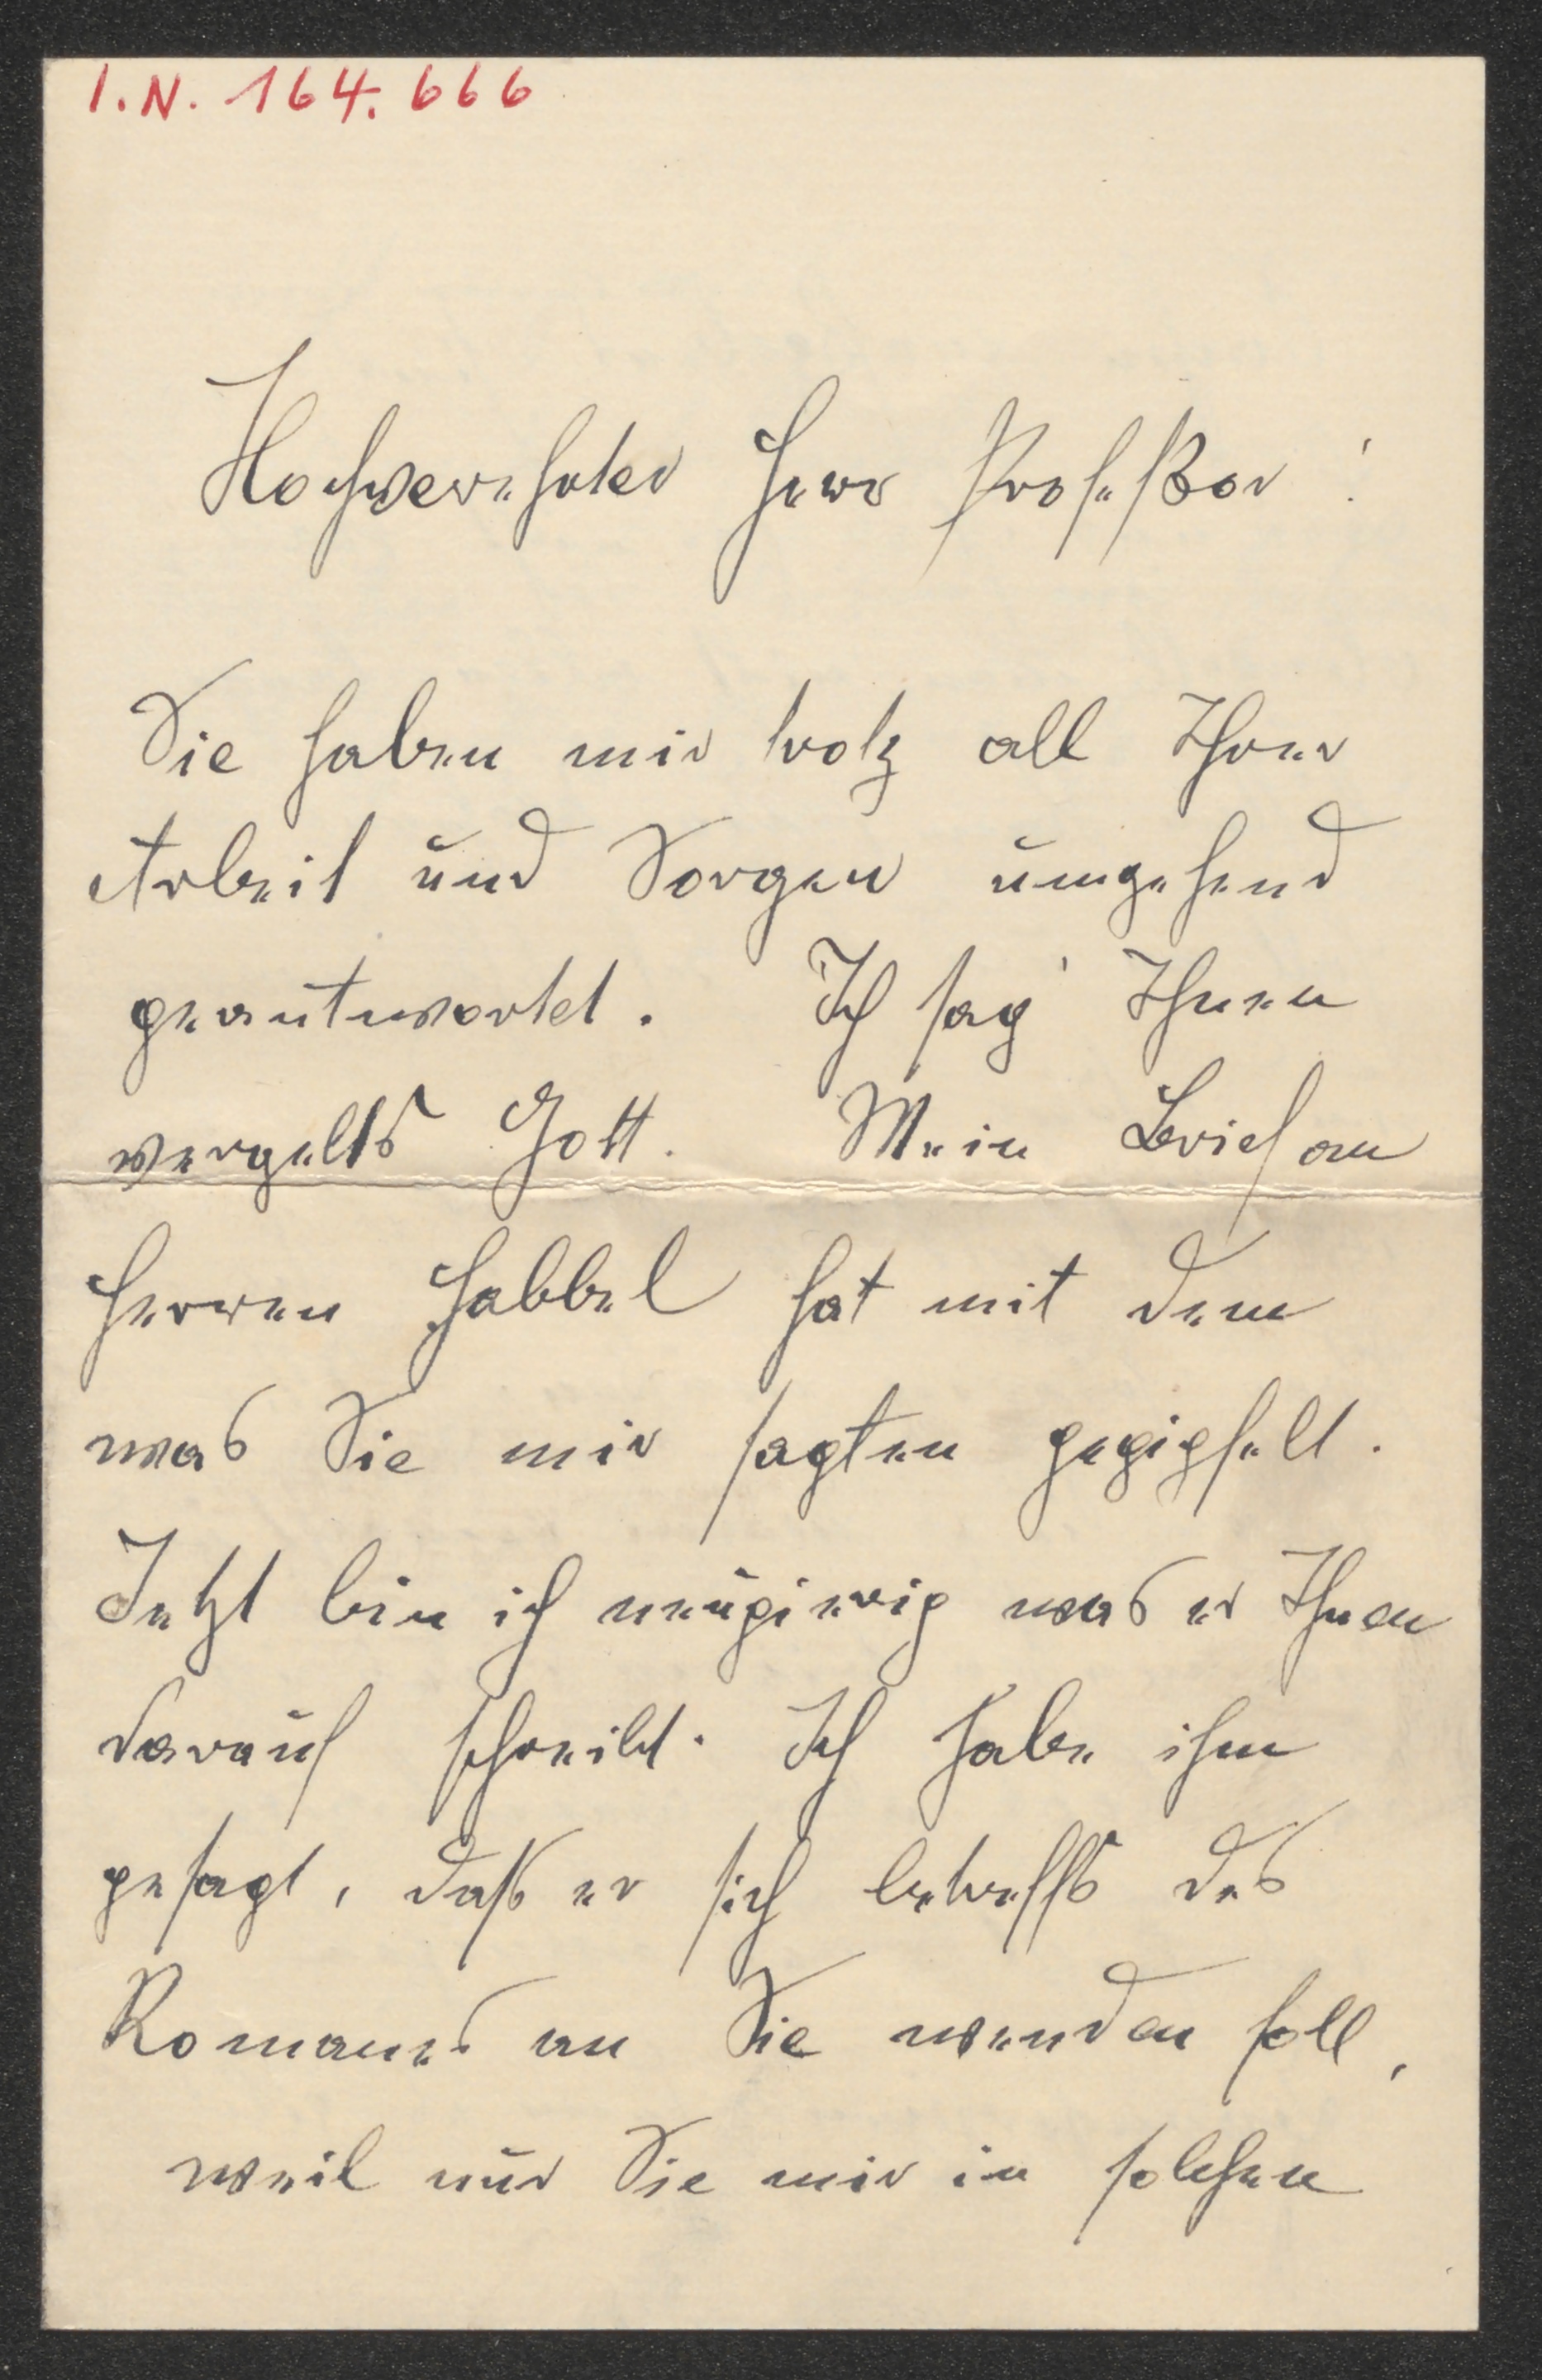 I.N. 164.666
Hochverehrter Herr Profeßor!
Sie haben mir trotz all Ihrer
Arbeit und Sorgen umgehend
geantwortet. Ich sag' Ihnen
vergelts Gott. Mein Brief an
Herren Habbel hat mit dem
was Sie mir sagten gegipfelt.
Jetzt bin ich neugierig was er Ihnen
darauf schreibt. Ich habe ihm
gesagt, daß er sich betreffs des
Romanes an Sie wenden soll,
weil nur Sie mir in solchen